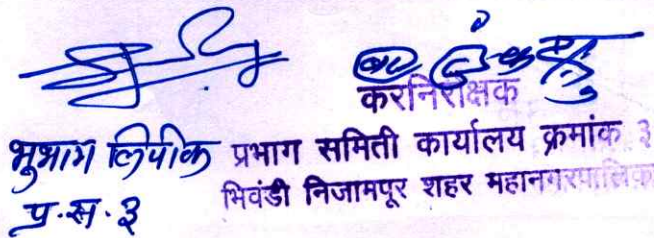 करनिरीक्षक
भुभाग लिपीक प्रभाग समिती कार्यालय क्रमांक ३
प्र.स.३ भिवंडी निजामपूर शहर महानगरपालिका